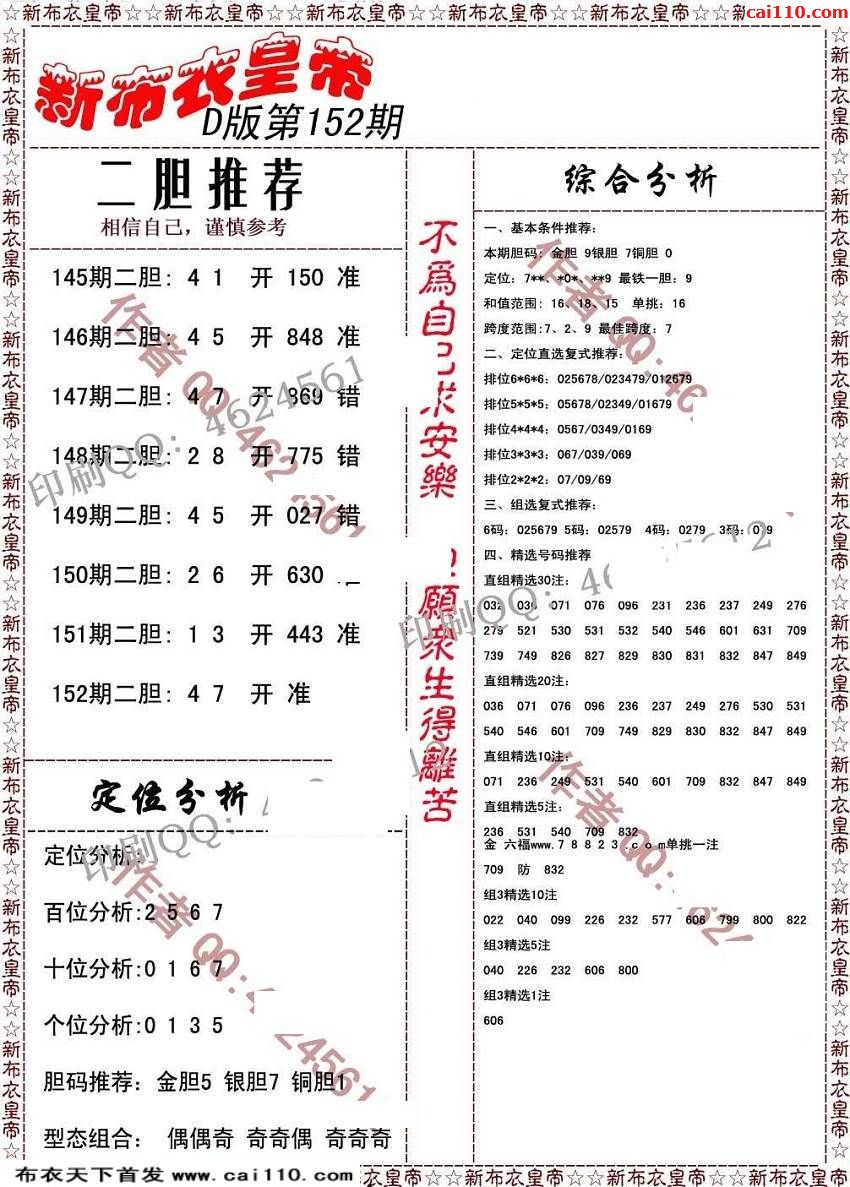 cai110.com
新布衣皇帝
D版第152期
二胆推荐
相信自己，谨慎参考
145期二胆: 4 1 开 150 准
146期二胆: 4 5 开 848 准
147期二胆: 4 7 开 869 错
148期二胆: 2 8 开 775 错
149期二胆: 4 5 开 027 错
150期二胆: 2 6 开 630
151期二胆: 1 3 开 443 准
152期二胆: 4 7 开 准
定位分析
定位分析:
百位分析:2 5 6 7
十位分析:0 1 6 7
个位分析:0 1 3 5
胆码推荐: 金胆5 银胆7 铜胆1
型态组合: 偶偶奇 奇奇偶 奇奇奇
不爲自己求安樂
願衆生得離苦
综合分析
一、基本条件推荐:
本期胆码: 金胆 9银胆 7铜胆 0
定位: 7**、*0*、**9 最铁一胆: 9
和值范围: 16、18、15 单挑: 16
跨度范围:7、2、9 最佳跨度: 7
二、定位直选复式推荐:
排位6*6*6: 025678/023479/012679
排位5*5*5: 05678/02349/01679
排位4*4*4: 0567/0349/0169
排位3*3*3: 067/039/069
排位2*2*2: 07/09/69
三、组选复式推荐:
6码: 025679 5码: 02579 4码: 0279 3码: 079
四、精选号码推荐
直组精选30注:
032 036 071 076 096 231 236 237 249 276
279 521 530 531 532 540 546 601 631 709
739 749 826 827 829 830 831 832 847 849
直组精选20注:
036 071 076 096 236 237 249 276 530 531
540 546 601 709 749 829 830 832 847 849
直组精选10注:
071 236 249 531 540 601 709 832 847 849
直组精选5注:
236 531 540 709 832
金 六福www.78823.com单挑一注
709 防 832
组3精选10注
022 040 099 226 232 577 606 799 800 822
组3精选5注
040 226 232 606 800
组3精选1注
606
印刷QQ: 4624561
作者 QQ:
布衣天下首发 www.cai110.com